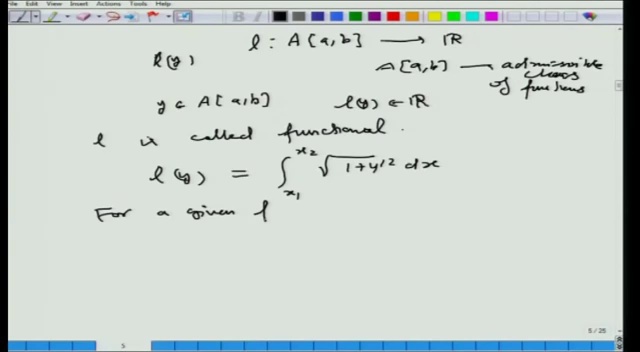 File Edit View Insert Actions Tools Help
l : A[a,b] → ℝ
l(y)
A[a,b] → admissible class of functions
y ∈ A[a,b] l(y) ∈ ℝ
l is called functional.
l(y) = ∫_{x₁}^{x₂} √(1+y'²) dx
For a given f
5 / 25
5